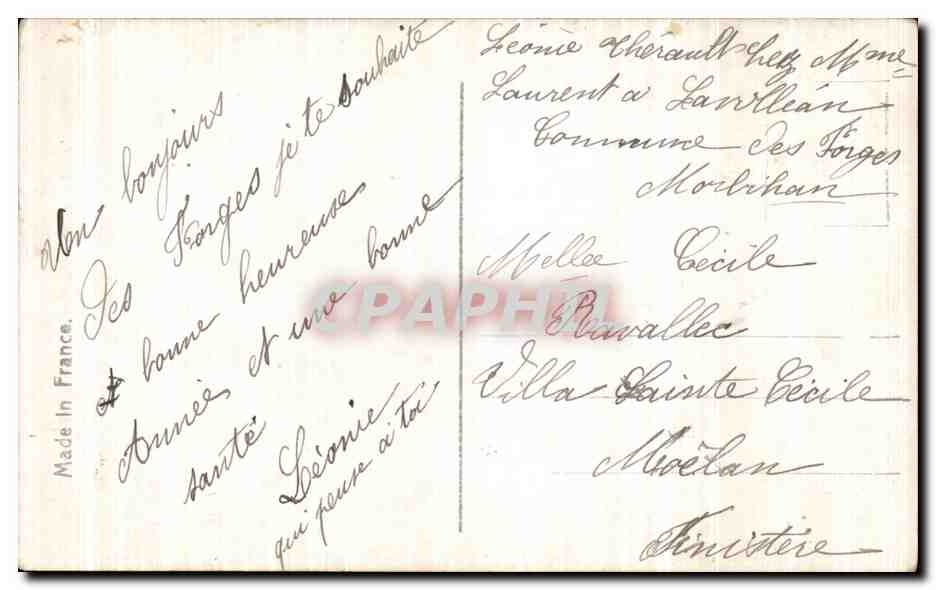 Un bonjours
Des Forges je te souhaite
bonne heureuse
Année et une bonne
santé
Léonie
qui pense à toi
Made In France.
Léonie Thérault chez Mme
Laurent a Lanvlléan
Commune des Forges
Morbihan
Mellee Cécile
Ravallec
Villa Sainte Cécile
Moëlan
Finistére
CPAPHIL